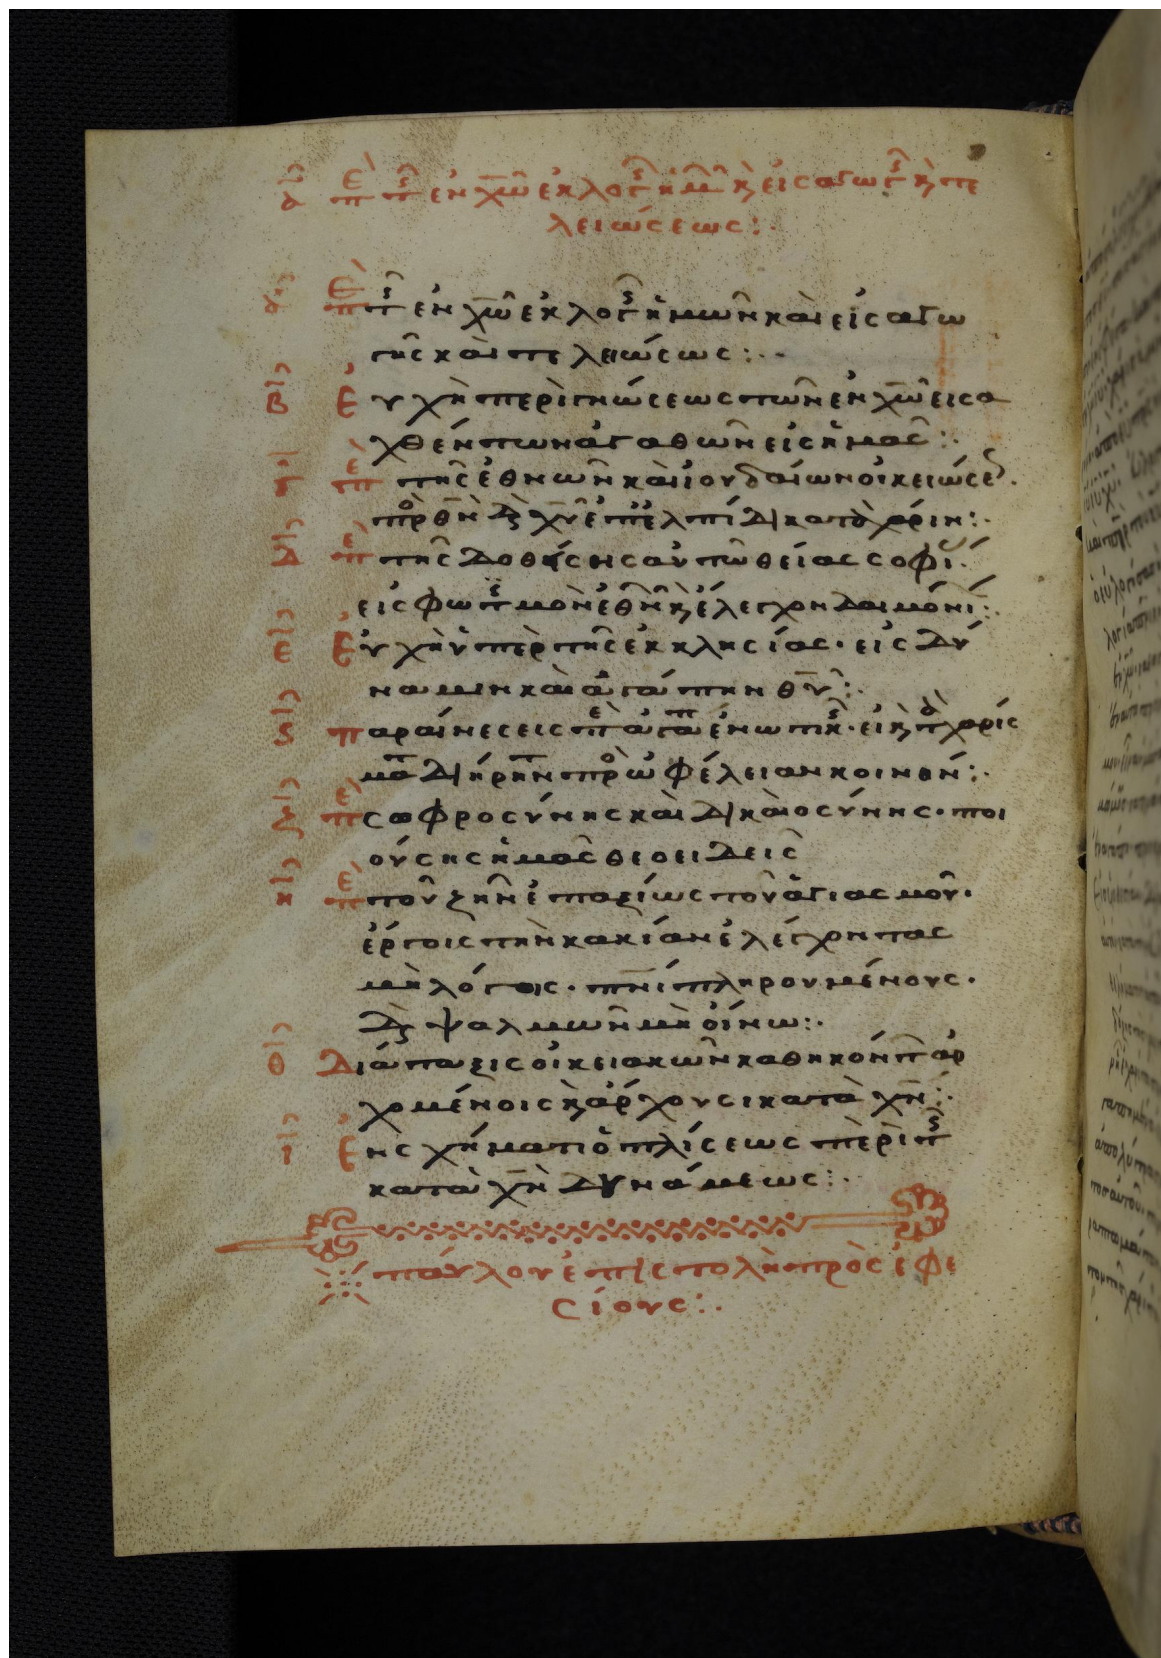 α Περὶ τῆς ἐν χω̅ ἐκλογῆς ἡμῶν καὶ εἰσαγωγῆς καὶ τε
λειώσεως:·
α Περὶ τῆς ἐν χω̅ ἐκλογῆς ἡμῶν καὶ εἰσαγω
γῆς καὶ τελειώσεως:·
β Εὐχὴ περὶ γνώσεως τῶν ἐν χω̅ εἰσα
χθέντων ἀγαθῶν εἰς ἡμᾶς:·
γ Περὶ τῆς ἐθνῶν καὶ ἰουδαίων οἰκειώσε
πρὸς θν̅ διὰ χυ̅ ἐπ' ἐλπίδι κατὰ χάριν:·
δ Περὶ τῆς δοθείσης αὐτῶ θείας σοφί
εἰς φωτισμὸν ἐθνῶν καὶ ἔλεγχον δαιμόνων:·
ε Εὐχὴ ὑπὲρ τῆς ἐκκλησίας· εἰς δύ
ναμιν καὶ ἀγάπην θυ̅:·
ς Παραίνεσεις περὶ ἀγάπης ἑνωτικῆς· εἰ καὶ τὰ χαρίς
ματα διήρηται πρὸς ὠφέλειαν κοινήν:·
ζ Περὶ σωφροσύνης καὶ δικαιοσύνης· ποι
ούσης ἡμᾶς θεοειδεῖς
η Περὶ τοῦ ζῆν ἐπαξίως τοῦ ἁγιασμοῦ·
ἔργοις τὴν κακίαν ἐλέγχοντας
μὴ λόγοις· πνι̅ πληρουμένους·
διὰ ψαλμῶν μὴ οἴνω:·
θ Διάταξις οἰκειακῶν καθηκόντων ἀρ
χομένοις καὶ ἄρχουσι κατὰ χν̅:·
ι Ἐν σχήματι ὁπλίσεως περὶ τῆς
κατὰ χν̅ δυνάμεως:·
παύλου ἐπιστολὴ πρὸς ἐφε
σίους:·